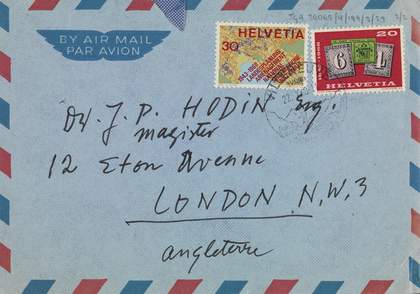 TGA 20062/4/199/3/29 3/2
BY AIR MAIL
PAR AVION
HELVETIA
30
20
HELVETIA
Dr. J. P. HODIN Esq.
magister
12 Eton Avenue
LONDON N.W.3
Angleterre